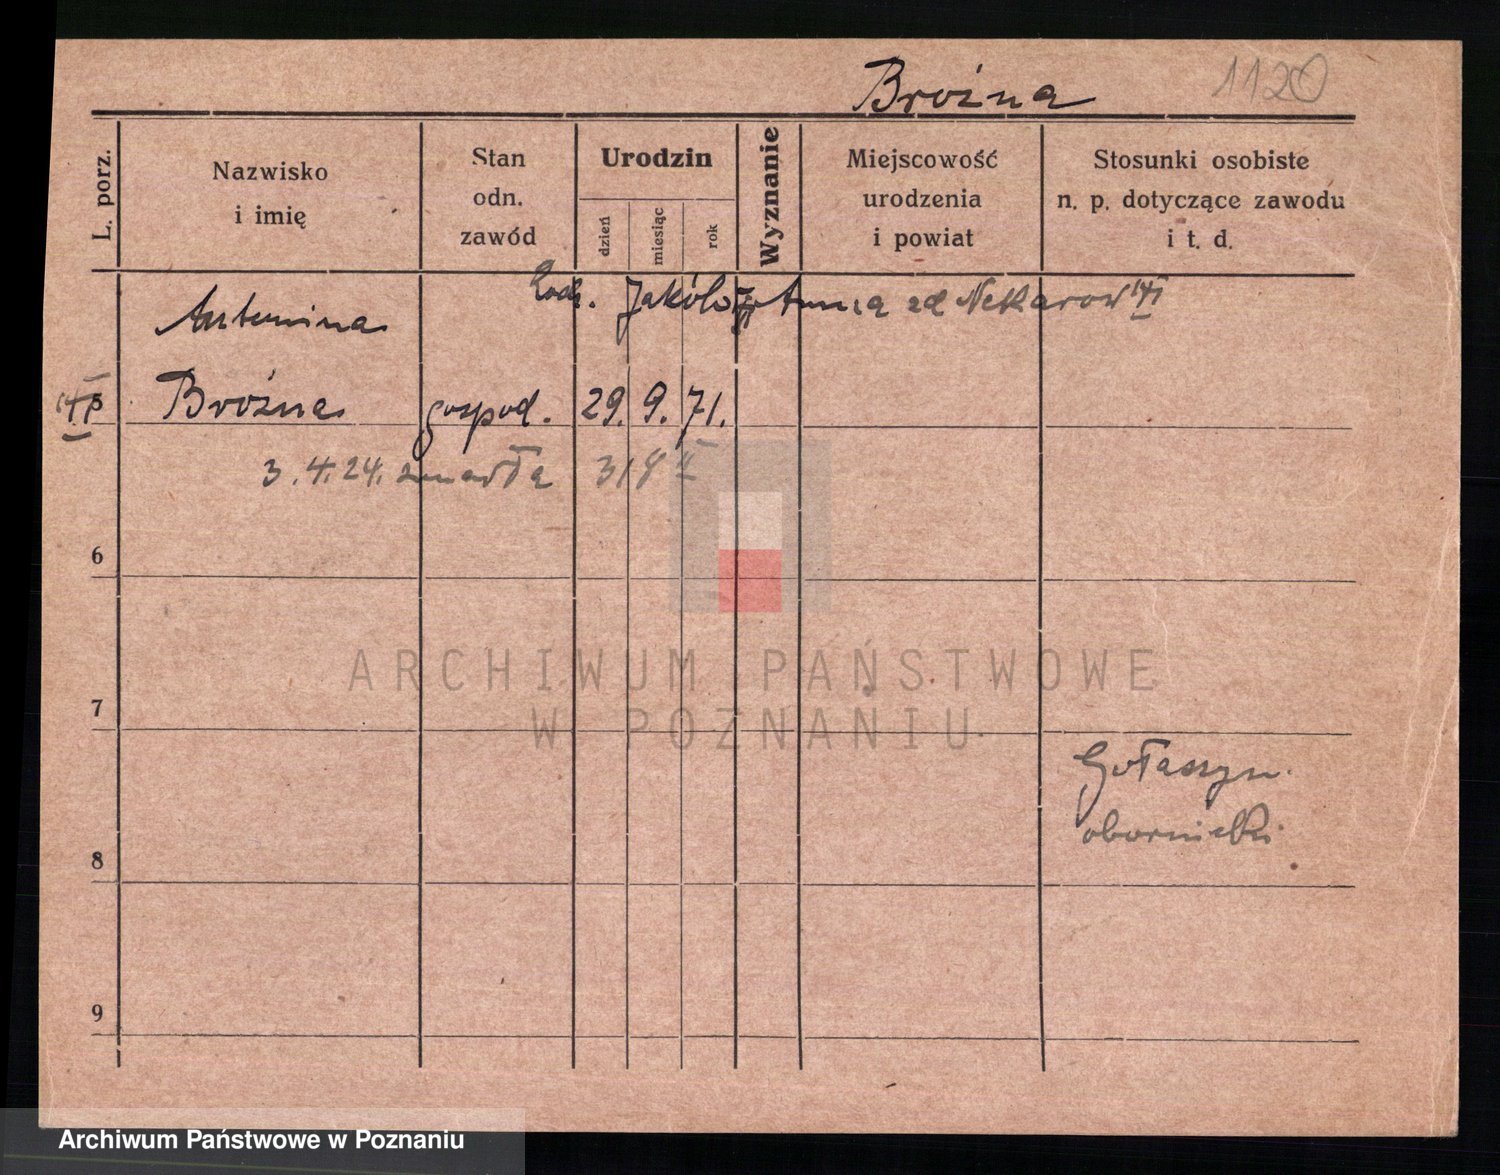 Broźna 1120
L. porz.
Nazwisko
i imię
Stan
odn.
zawód
Urodzin
dzień
miesiąc
rok
Wyznanie
Miejscowość
urodzenia
i powiat
Stosunki osobiste
n. p. dotyczące zawodu
i t. d.
Rodz. Jakób Anna zd
Antonina
5 Broźna gospod. 29. 9. 71.
3. 4. 24. zmarła 318 II
6
7
Gołaszyn.
obornicki
8
9
ARCHIWUM PAŃSTWOWE
W POZNANIU
Archiwum Państwowe w Poznaniu